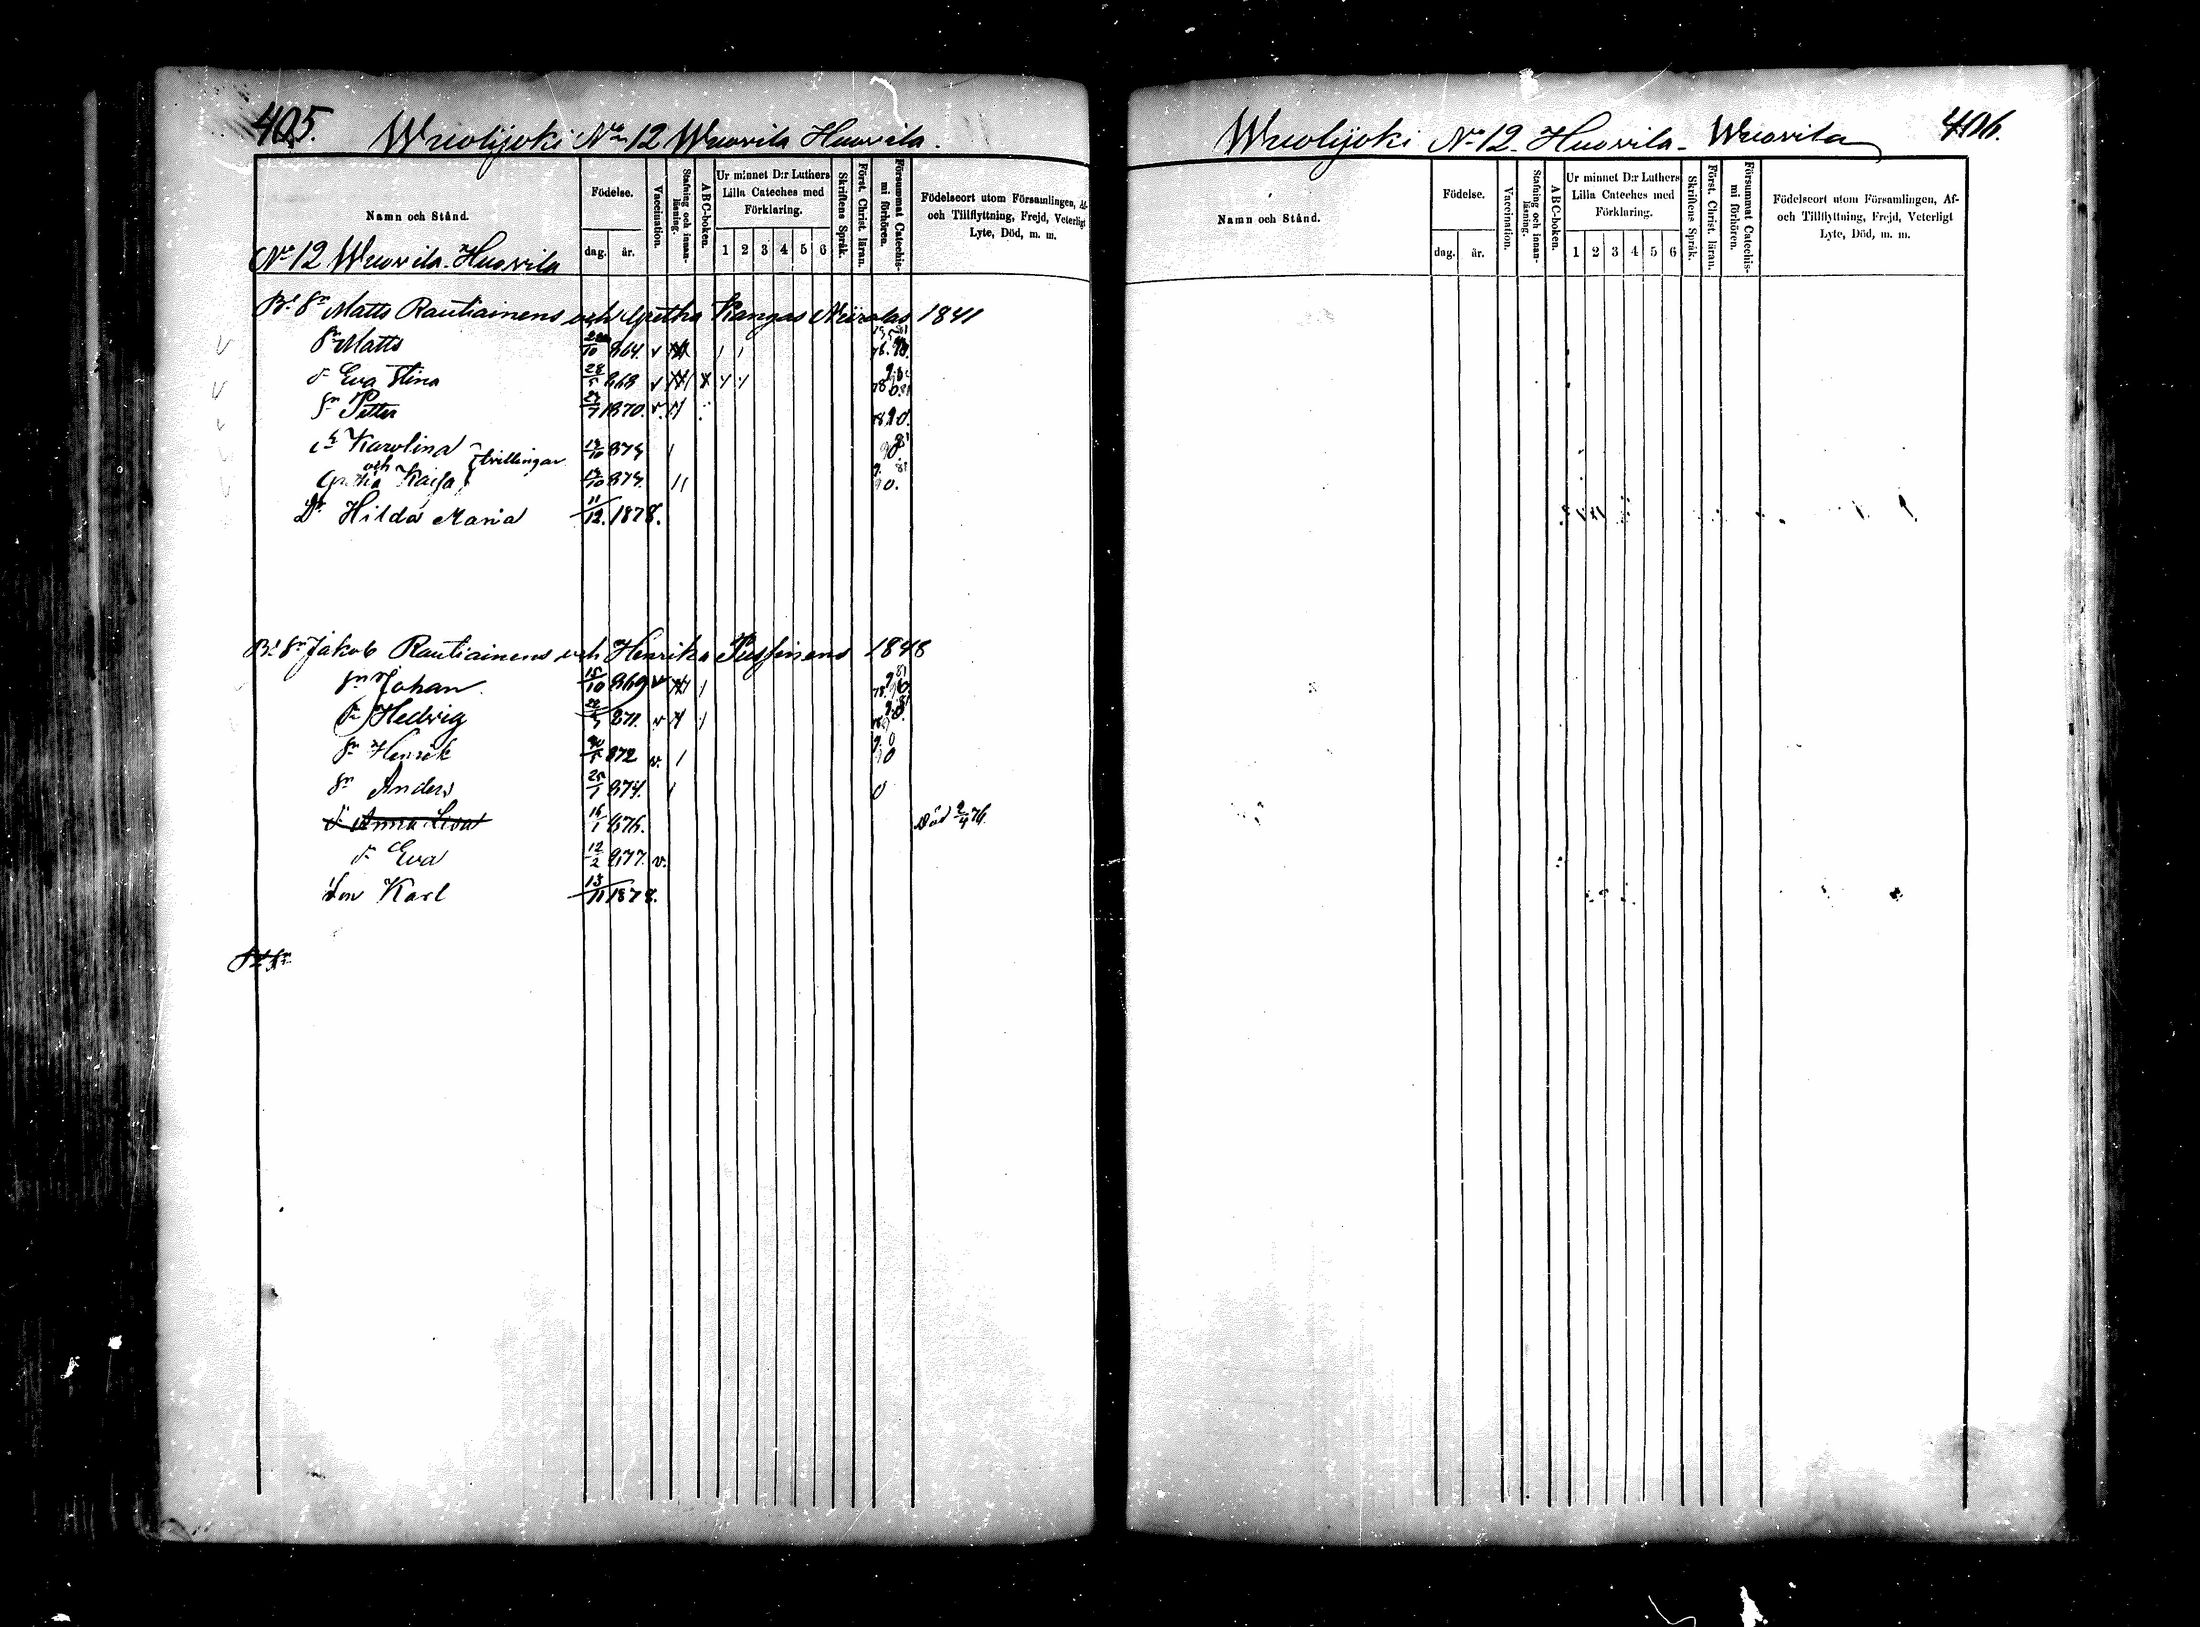 405.
Wuolijoki No 12 Wuovila Huovila.
Namn och Stånd.
Födelse.
dag.
år.
Vaccination.
Stafning och innan-läsning.
ABC-boken.
Ur minnet D:r Luthers
Lilla Cateches med
Förklaring.
1 2 3 4 5 6
Skriftens Språk.
Först. Christ. läran.
Försummat Catechis-
mi förhören.
Födelseort utom Församlingen, Af-
och Tillflyttning, Frejd, Veterligt
Lyte, Död, m. m.
No 12 Wuovila Huovila
Bd Sn Matts Rautiainens och Gretha Kangas Niiralas 1841
Sn Matts 10 864. v
d Eva Stina 28/5 868 v
Sn Petter 1870. v.
Karolina 874
och } tvillingar
Gretha Kaisa 874.
Dr Hilda Maria 11/12. 1878.
Bd Sn Jakob Rautiainens och Henrika Pussinens 1848
Sn Johan 15/10 869 v
Hedvig 871. v
Sn Henrik 872 v.
Sn Anders 25/1 874.
d. Anna Lisa 16/1 876. Död 2/4 76.
d. Eva 12/2 877. v.
Son Karl 13/11 1878.
Wuolijoki No 12. Huovila - Wuovila
406.
Namn och Stånd.
Födelse.
dag.
år.
Vaccination.
Stafning och innan-läsning.
ABC-boken.
Ur minnet D:r Luthers
Lilla Cateches med
Förklaring.
1 2 3 4 5 6
Skriftens Språk.
Först. Christ. läran.
Försummat Catechis-
mi förhören.
Födelseort utom Församlingen, Af-
och Tillflyttning, Frejd, Veterligt
Lyte, Död, m. m.